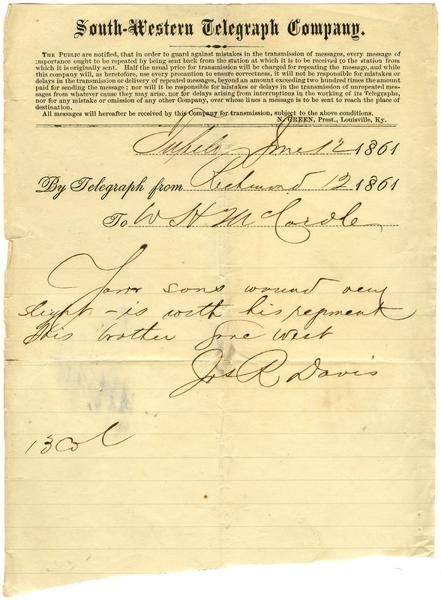 South-Western Telegraph Company.
THE PUBLIC are notified, that in order to guard against mistakes in the transmission of messages, every message of
importance ought to be repeated by being sent back from the station at which it is to be received to the station from
which it is originally sent. Half the usual price for transmission will be charged for repeating the message, and while
this company will, as heretofore, use every precaution to ensure correctness, it will not be responsible for mistakes or
delays in the transmission or delivery of repeated messages, beyond an amount exceeding two hundred times the amount
paid for sending the message; nor will it be responsible for mistakes or delays in the transmission of unrepeated mes-
sages from whatever cause they may arise, nor for delays arising from interruptions in the working of its Telegraphs,
nor for any mistake or omission of any other Company, over whose lines a message is to be sent to reach the place of
destination.
All messages will hereafter be received by this Company for transmission, subject to the above conditions.
N. GREEN, Prest., Louisville, Ky.
June 12 1861
By Telegraph from Richmond 12 1861
To W H McCardle
Your sons wound very
slight - is with his regiment
His brother gone West
Jos R Davis
13 Col